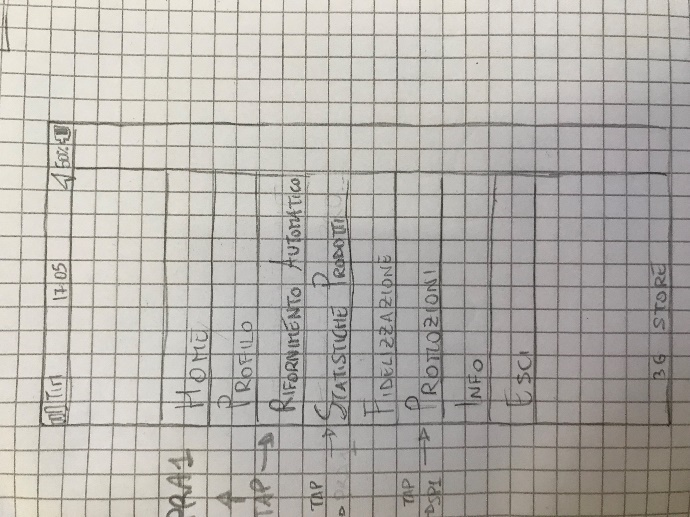 TIM 17:05 50%
HOME
PROFILO
RIFORNIMENTO AUTOMATICO
STATISTICHE PRODOTTI
FIDELIZZAZIONE
PROMOZIONI
INFO
ESCI
3G STORE
PRA1
TAP
TAP
TAP
DSP1